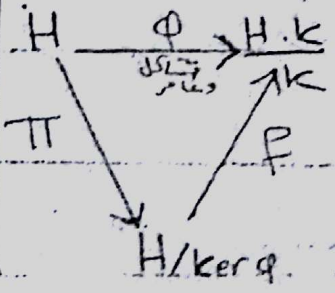 H φ H.K
تشاكل K
وغامر
π f
H/ker φ.